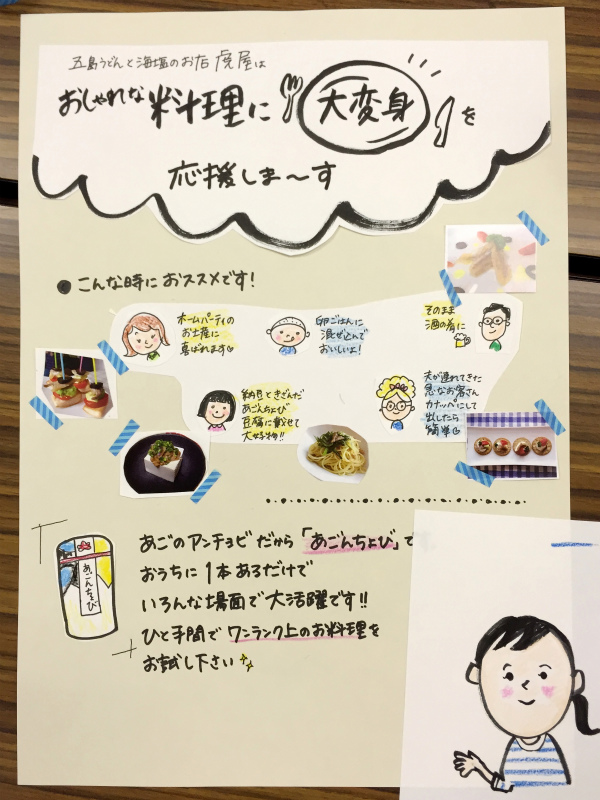 五島うどんと海塩のお店 虎屋は
おしゃれな料理に 大変身 を
応援しま〜す
● こんな時におススメです!
ホームパーティの
お土産に
喜ばれます
卵ごはんに
混ぜ込んで
おいしいよ!
そのまま
酒の肴に
納豆ときざんだ
あごんちょび
豆腐に載せて
大好物!!
夫が連れてきた
急なお客さん
カナッペにして
出したら
簡単
あごんちょび
あごのアンチョビだから「あごんちょび」で
おうちに1本あるだけで
いろんな場面で大活躍です!!
ひと手間でワンランク上のお料理を
お試し下さい